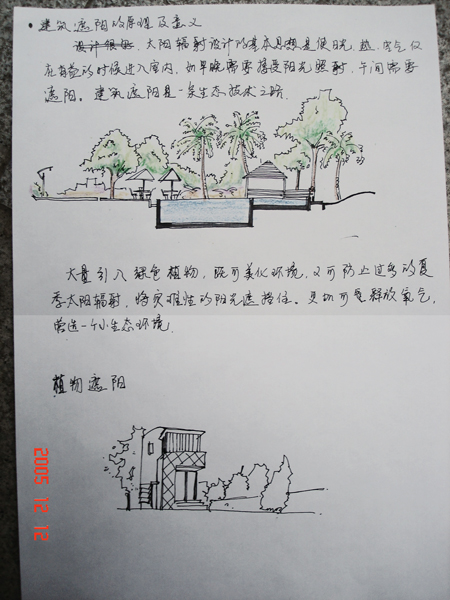 • 建筑遮阳的原理及意义
太阳辐射设计的基本思想是使日光、热、空气仅
在有益的时候进入室内，如早晚需要接受阳光照射，午间需要
遮阳。建筑遮阳是一条生态技术之路.
大量引入绿色植物，既可美化环境，又可防止过多的夏
季太阳辐射，将灾难性的阳光遮挡住。更切可是释放氧气，
营造一个小生态环境.
植物遮阳
2005 12 12